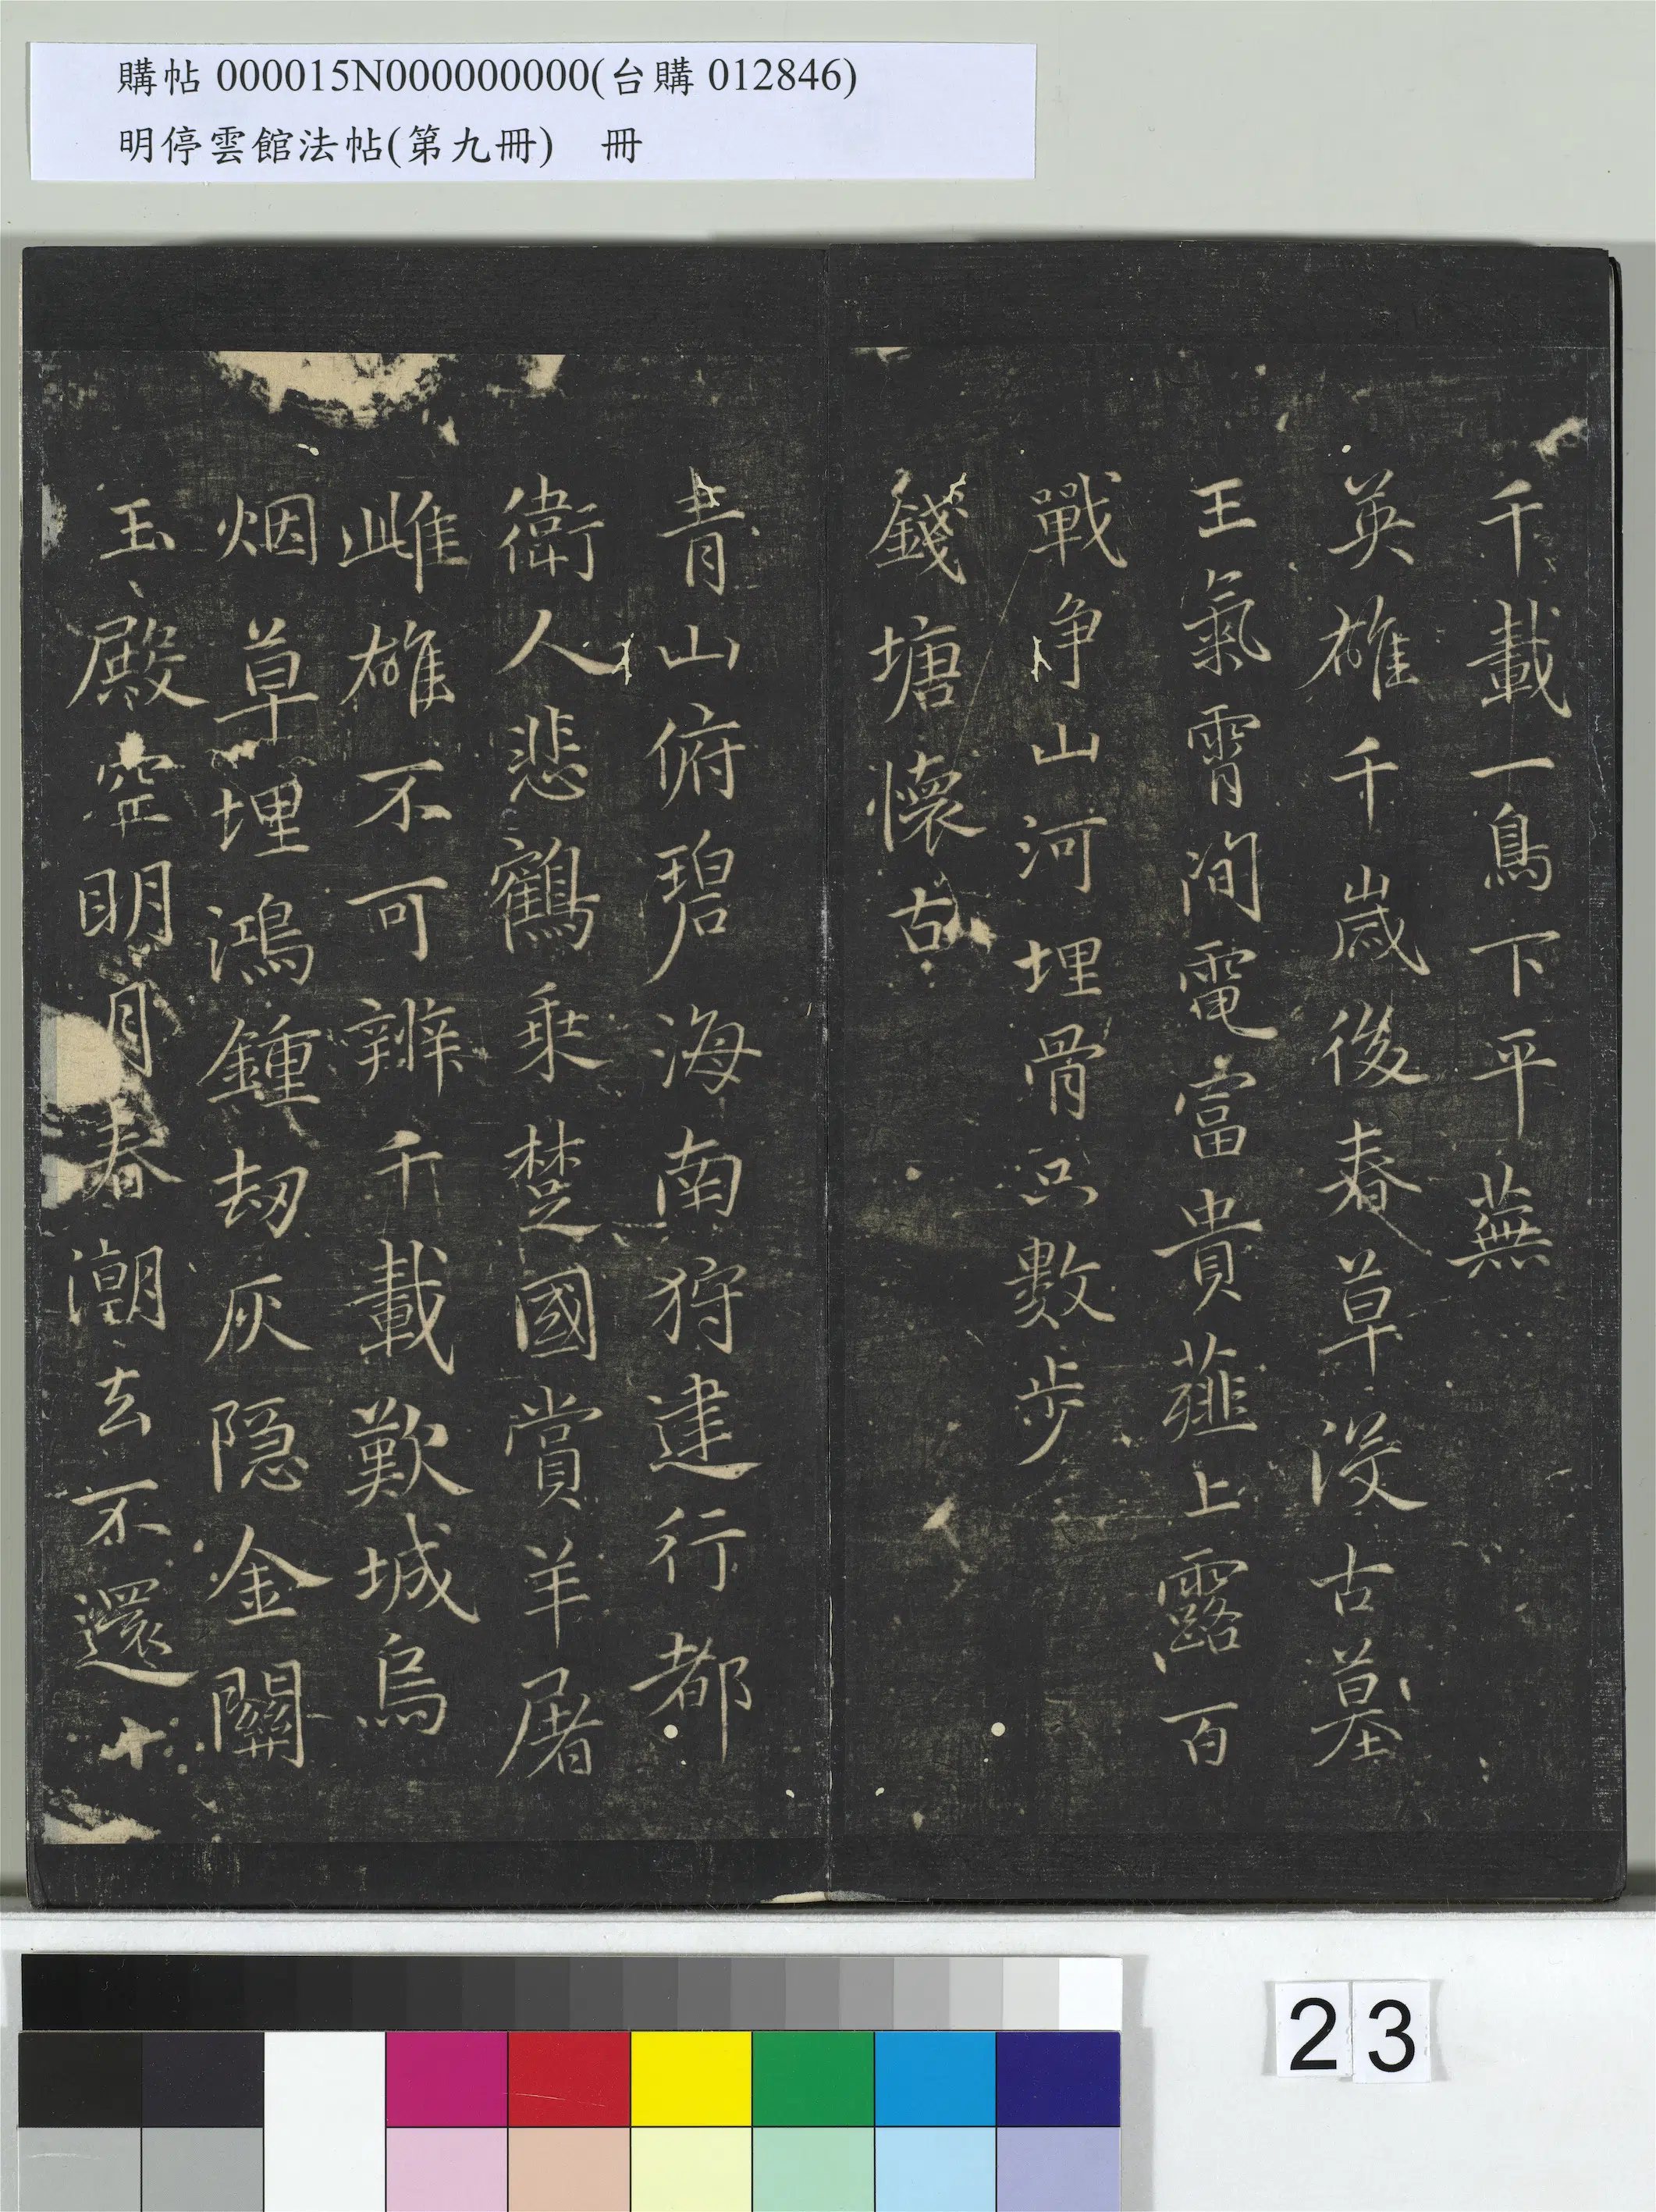 購帖 000015N000000000(台購 012846)
明停雲館法帖(第九冊) 冊
千載一鳥下平蕪
英雄千歲後春草没古墓
王氣霄間電富貴薤上露百
戰爭山河埋骨只數步
錢塘懷古
青山俯碧海南狩建行都
衛人悲鶴乘楚國賞羊屠
雌雄不可辨千載歎城烏
烟草埋鴻鍾劫灰隱金關
玉殿空明月春潮去不還十
23